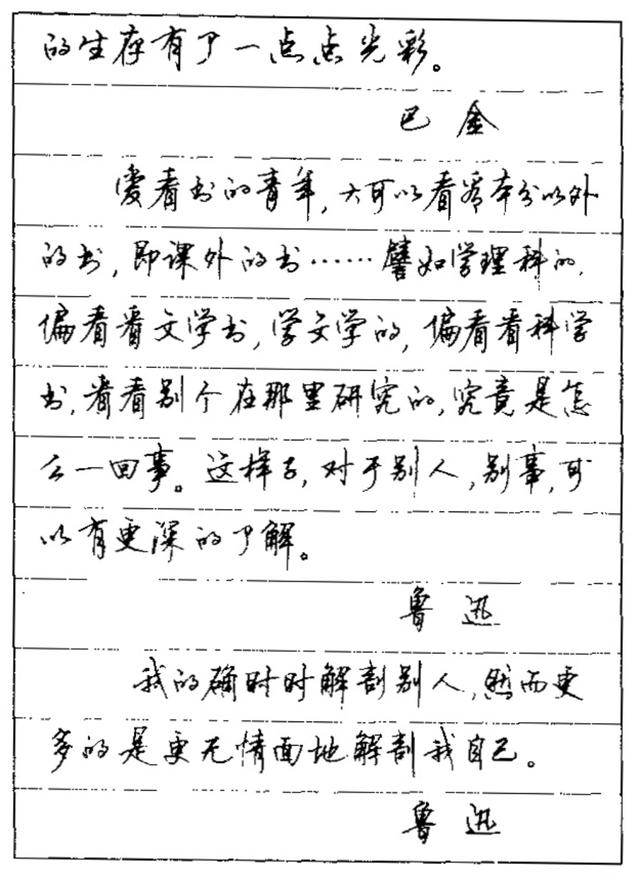 的生存有了一点点光彩。
巴金
爱看书的青年，大可以看看本分以外
的书，即课外的书……譬如学理科的，
偏看看文学书，学文学的，偏看看科学
书，看看别个在那里研究的，究竟是怎
么一回事。这样子，对于别人，别事，可
以有更深的了解。
鲁迅
我的确时时解剖别人，然而更
多的是更无情面地解剖我自己。
鲁迅